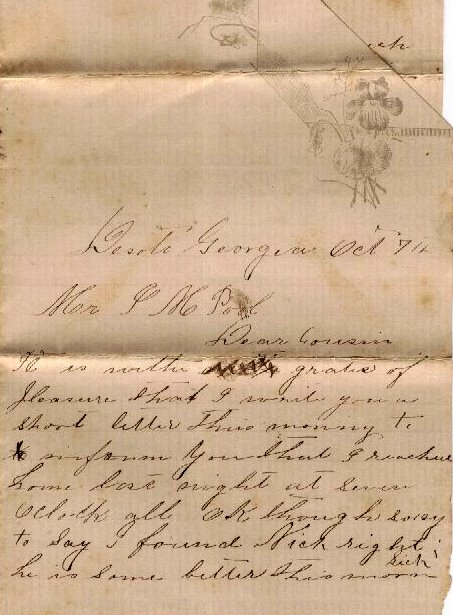 Desoto Georgia Oct 7th
Mr P M Pool
Dear Cousin
It is with grates of
pleasure that I writ you a
short letter this morning to
inform you that I reached
home last night at seven
Oclock all OK though sory
to say I found Nick right
sick
he is some better this morn